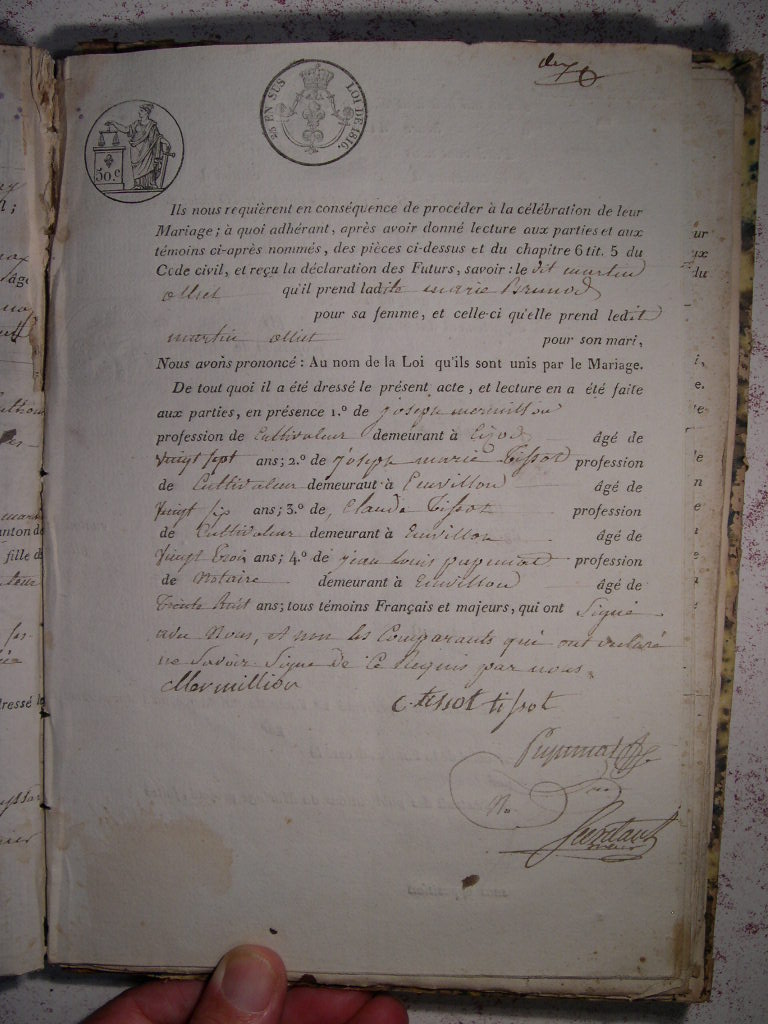 25 EN SUS LOI DE 1816.
50.c
Ils nous requièrent en conséquence de procéder à la célébration de leur
Mariage; à quoi adhérant, après avoir donné lecture aux parties et aux
témoins ci-après nommés, des pièces ci-dessus et du chapitre 6 tit. 5 du
Code civil, et reçu la déclaration des Futurs, savoir: le dit martin
olliet qu'il prend ladite marie Brunod
pour sa femme, et celle-ci qu'elle prend ledit
martin olliet pour son mari,
Nous avons prononcé: Au nom de la Loi qu'ils sont unis par le Mariage.
De tout quoi il a été dressé le présent acte, et lecture en a été faite
aux parties, en présence 1.º de joseph mermillon
profession de Cultivateur demeurant à âgé de
vingt sept ans; 2.º de joseph marie tissot profession
de Cultivateur demeurant à Euvillon âgé de
vingt six ans; 3.º de, Claude tissot profession
de Cultivateur demeurant à Euvillon âgé de
vingt trois ans; 4.º de jean louis profession
de Notaire demeurant à Euvillon âgé de
trente huit ans; tous témoins Français et majeurs, qui ont Signé
avec Nous, et non les Comparants qui ont déclaré
ne Savoir Signé de Ce Requis par nous.
Mermillion
C. tissot tissot
No
maire